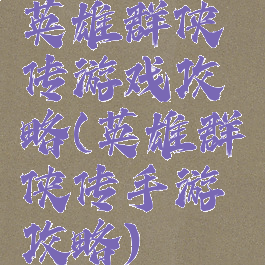 英雄群侠
传游戏攻
略(英雄群
侠传手游
攻略)